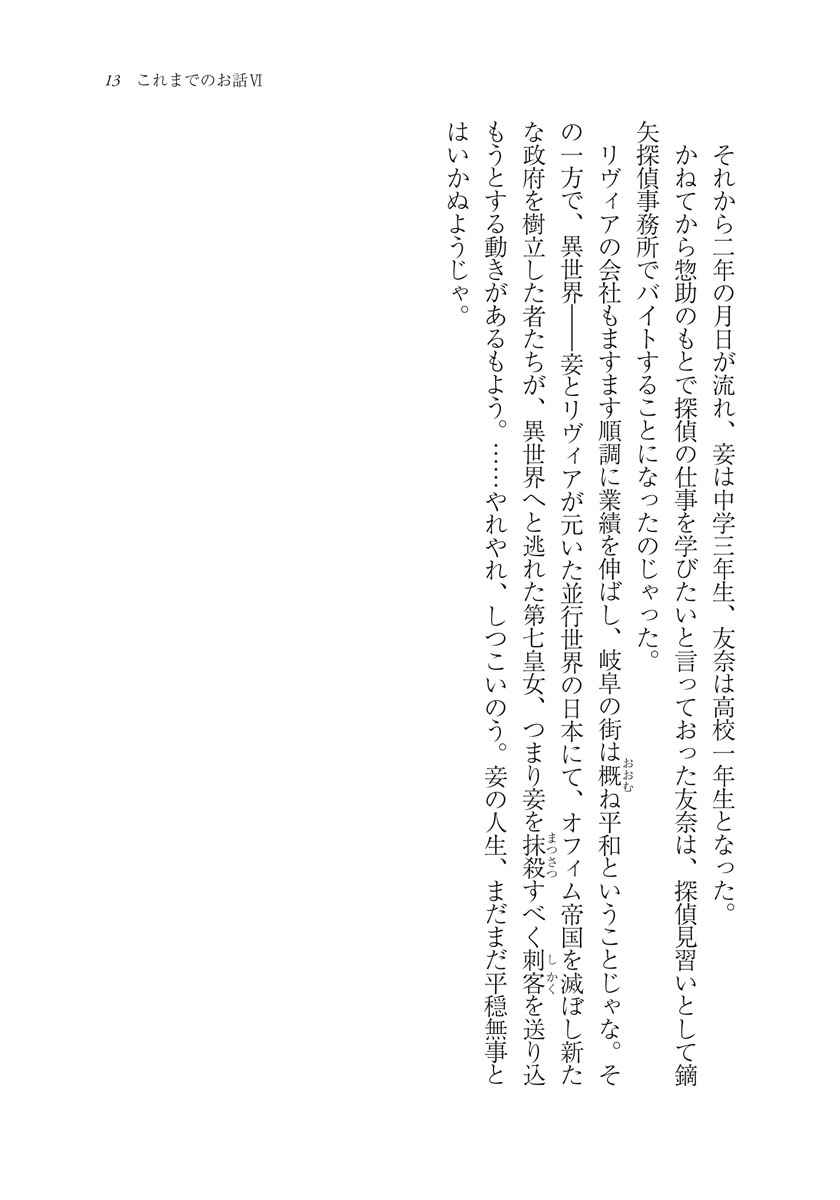 13 これまでのお話Ⅵ
それから二年の月日が流れ、妾は中学三年生、友奈は高校一年生となった。
かねてから惣助のもとで探偵の仕事を学びたいと言っておった友奈は、探偵見習いとして鏑
矢探偵事務所でバイトすることになったのじゃった。
リヴィアの会社もますます順調に業績を伸ばし、岐阜の街は概ね平和ということじゃな。そ
の一方で、異世界――妾とリヴィアが元いた並行世界の日本にて、オフィム帝国を滅ぼし新た
な政府を樹立した者たちが、異世界へと逃れた第七皇女、つまり妾を抹殺すべく刺客を送り込
もうとする動きがあるもよう。……やれやれ、しつこいのう。妾の人生、まだまだ平穏無事と
はいかぬようじゃ。
おおむ
まっさつ
しかく